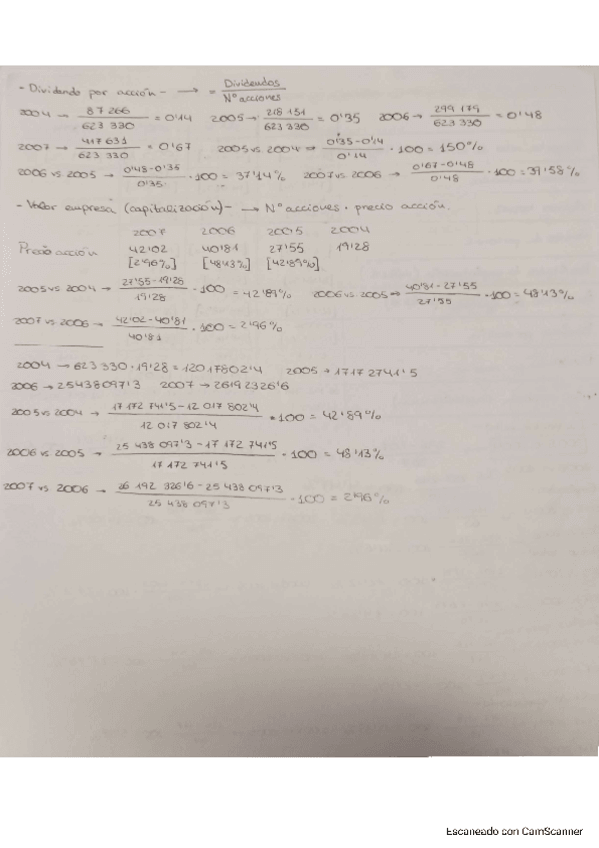 - Dividendo por acción - → = Dividendos / Nº acciones
2004 → 87 266 / 623 330 = 0'14 2005 → 218 151 / 623 330 = 0'35 2006 → 299 179 / 623 330 = 0'48
2007 → 417 631 / 623 330 = 0'67 2005 vs 2004 → 0'35-0'14 / 0'14 · 100 = 150%
2006 vs 2005 → 0'48-0'35 / 0'35 · 100 = 37'14% 2007 vs 2006 → 0'67-0'48 / 0'48 · 100 = 39'58%
- Valor empresa (capitalización) - → Nº acciones · precio acción.
2007 2006 2005 2004
Precio acción 42'02 40'81 27'55 19'28
[2'96%] [48'13%] [42'89%]
2005 vs 2004 → 27'55-19'28 / 19'28 · 100 = 42'89% 2006 vs 2005 → 40'81-27'55 / 27'55 · 100 = 48'13%
2007 vs 2006 → 42'02-40'81 / 40'81 · 100 = 2'96%
2004 → 623 330 · 19'28 = 12017802'4 2005 → 17172741'5
2006 → 25438097'3 2007 → 26192326'6
2005 vs 2004 → 17 172 741'5 - 12 017 802'4 / 12 017 802'4 · 100 = 42'89%
2006 vs 2005 → 25 438 097'3 - 17 172 741'5 / 17 172 741'5 · 100 = 48'13%
2007 vs 2006 → 26 192 326'6 - 25 438 097'3 / 25 438 097'3 · 100 = 2'96%
Escaneado con CamScanner